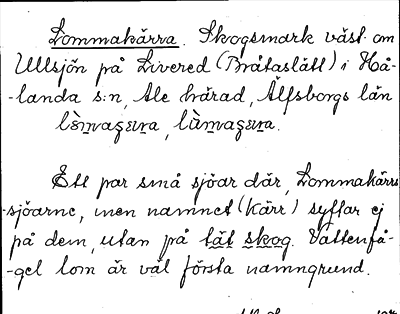 Lommakärra. Skogsmark väst om
Ullsjön på Livered (Bråtaslätt) i Hå-
-landa s:n, Ale härad, Älfsborgs län

Ett par små sjöar där, Lommakärrs
-sjöarne, men namnet (Kärr) syftar ej
på dem, utan på tät skog. Vattenfå-
-gel lom är väl första namngrund.